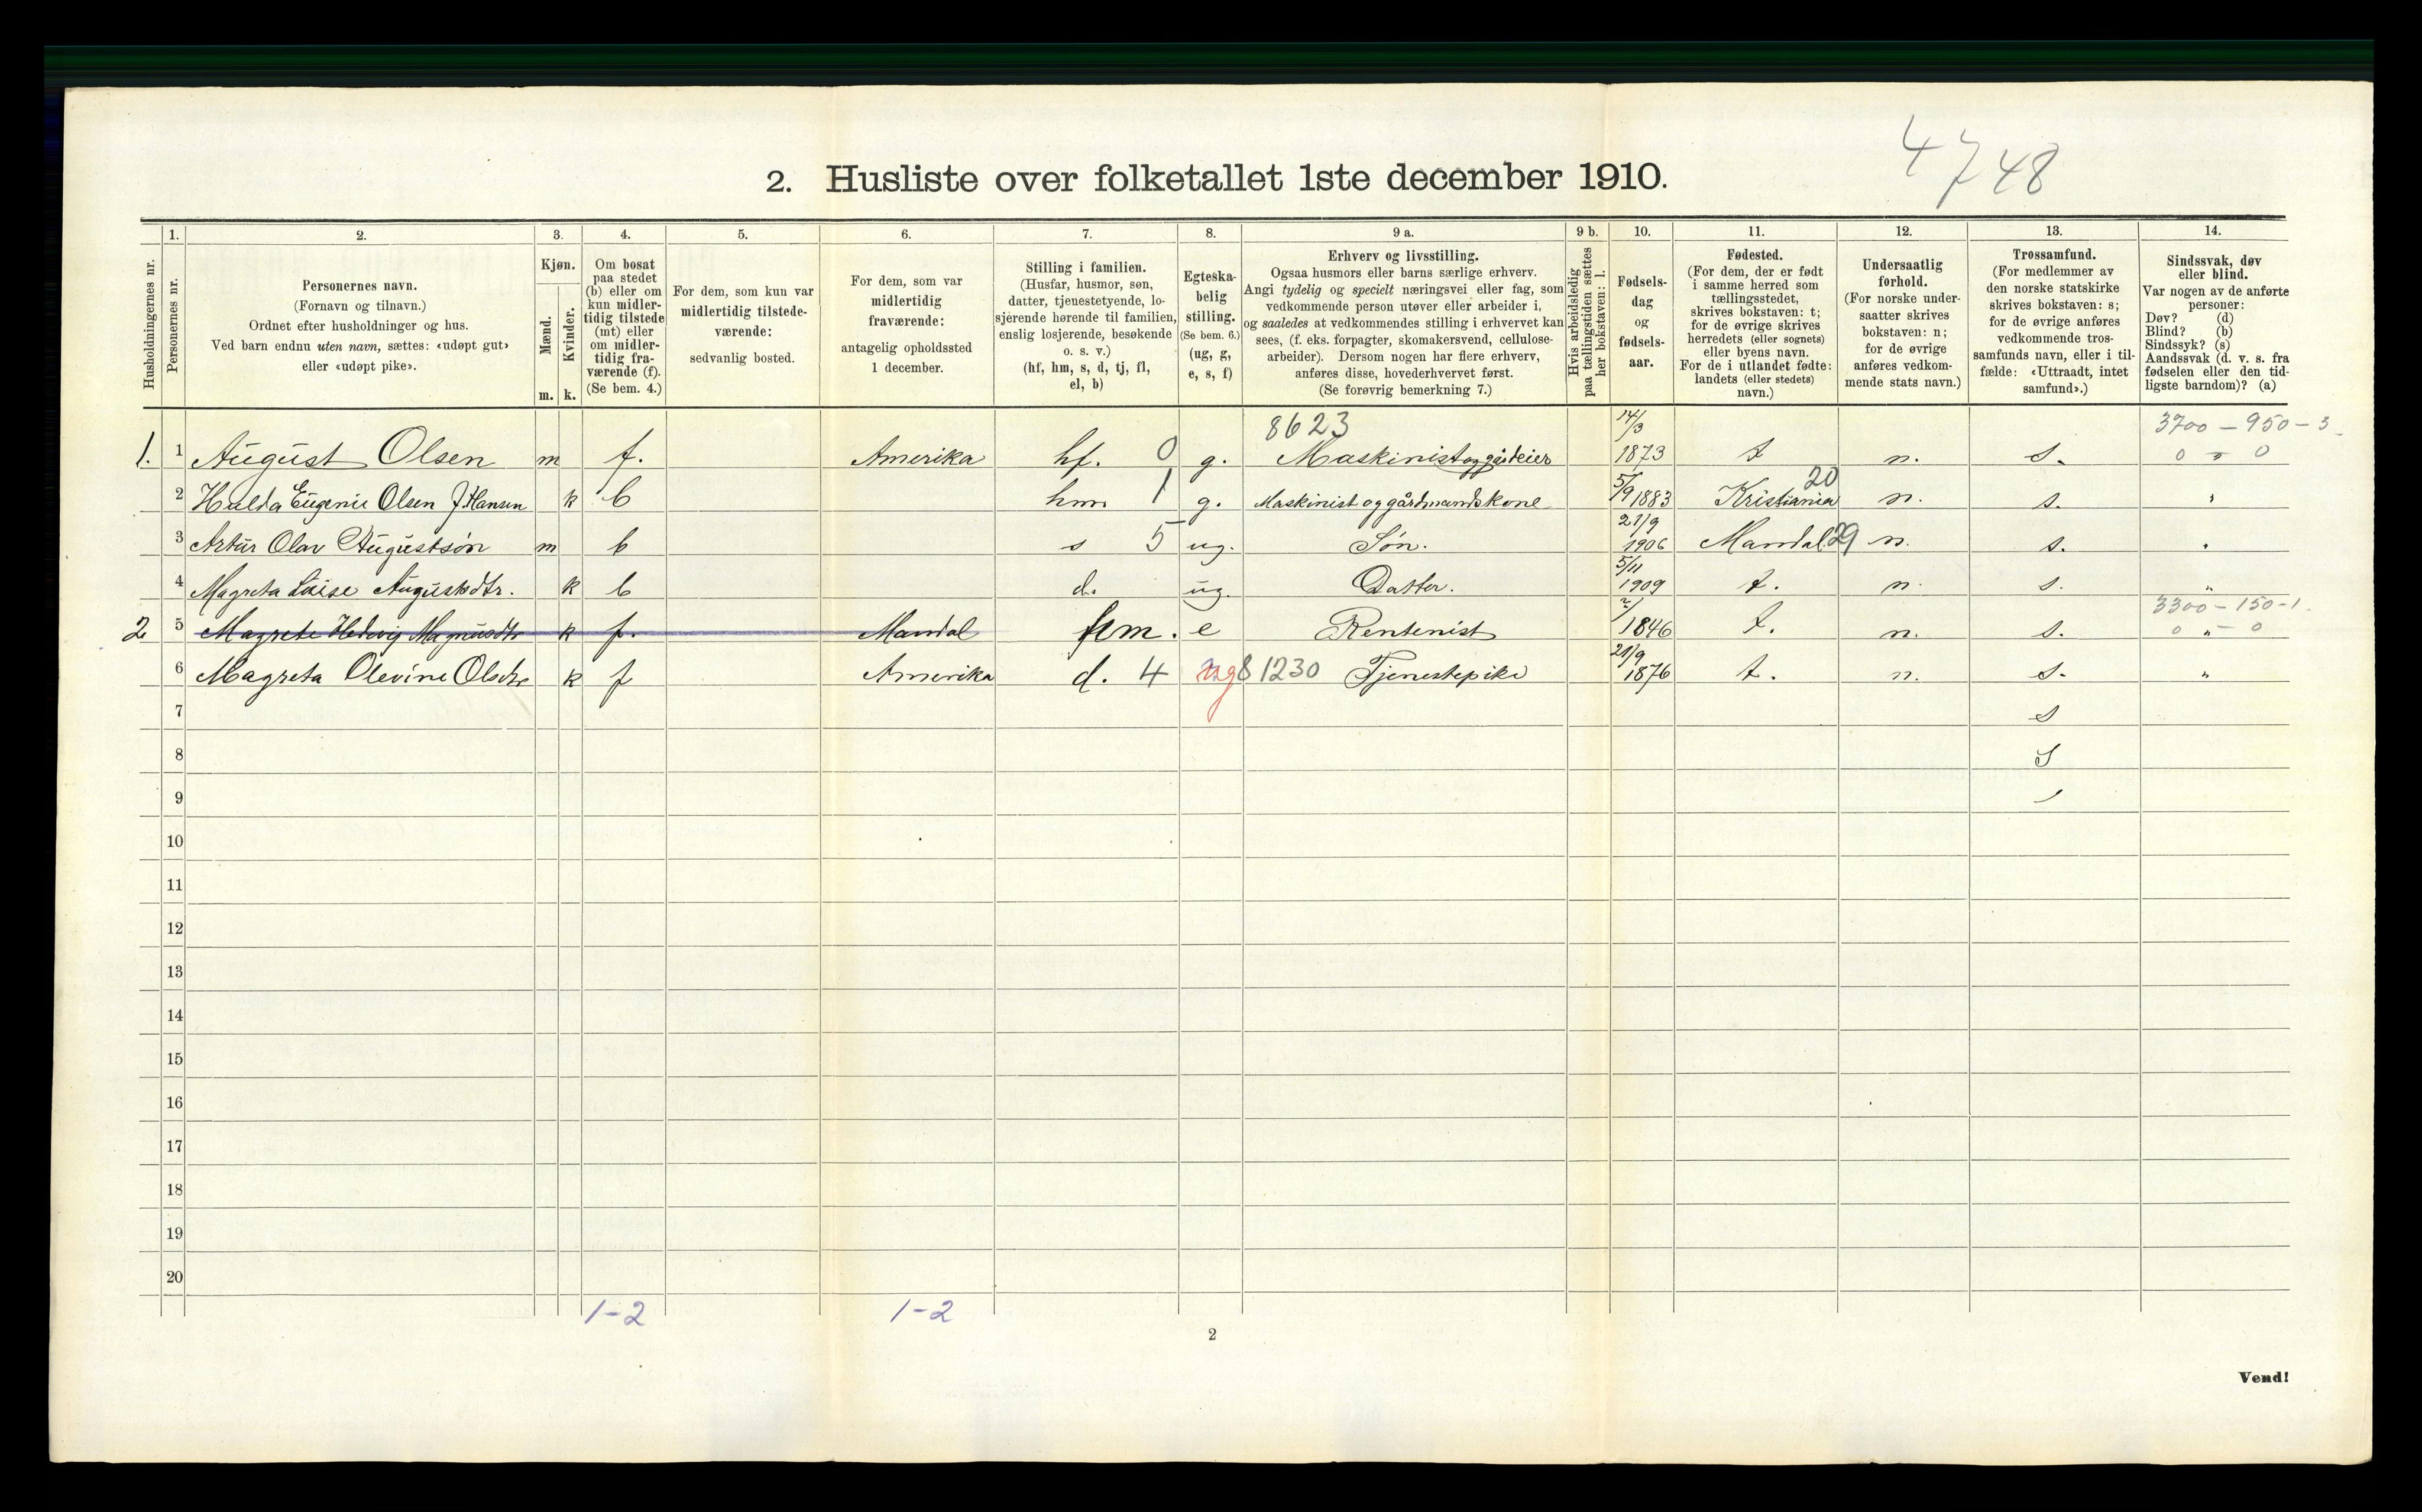 4748
2. Husliste over folketallet 1ste december 1910.
Husholdningernes nr.
1. Personernes nr.
2. Personernes navn.
(Fornavn og tilnavn.)
Ordnet efter husholdninger og hus.
Ved barn endnu uten navn, sættes: «udøpt gut»
eller «udøpt pike».
3. Kjøn.
Mænd. Kvinder.
m. k.
4. Om bosat
paa stedet
(b) eller om
kun midler-
tidig tilstede
(mt) eller
om midler-
tidig fra-
værende (f).
(Se bem. 4.)
5. For dem, som kun var
midlertidig tilstede-
værende:
sedvanlig bosted.
6. For dem, som var
midlertidig
fraværende:
antagelig opholdssted
1 december.
7. Stilling i familien.
(Husfar, husmor, søn,
datter, tjenestetyende, lo-
sjerende hørende til familien,
enslig losjerende, besøkende
o. s. v.)
(hf, hm, s, d, tj, fl,
el, b)
8. Egteska-
belig
stilling.
(Se bem. 6.)
(ug, g,
e, s, f)
9 a. Erhverv og livsstilling.
Ogsaa husmors eller barns særlige erhverv.
Angi tydelig og specielt næringsvei eller fag, som
vedkommende person utøver eller arbeider i,
og saaledes at vedkommendes stilling i erhvervet kan
sees, (f. eks. forpagter, skomakersvend, cellulose-
arbeider). Dersom nogen har flere erhverv,
anføres disse, hovederhvervet først.
(Se forøvrig bemerkning 7.)
9 b. Hvis arbeidsledig
paa tællingstiden sættes
her bokstaven: l.
10. Fødsels-
dag
og
fødsels-
aar.
11. Fødested.
(For dem, der er født
i samme herred som
tællingsstedet,
skrives bokstaven: t;
for de øvrige skrives
herredets (eller sognets)
eller byens navn.
For de i utlandet fødte:
landets (eller stedets)
navn.)
12. Undersaatlig
forhold.
(For norske under-
saatter skrives
bokstaven: n;
for de øvrige
anføres vedkom-
mende stats navn.)
13. Trossamfund.
(For medlemmer av
den norske statskirke
skrives bokstaven: s;
for de øvrige anføres
vedkommende tros-
samfunds navn, eller i til-
fælde: «Uttraadt, intet
samfund».)
14. Sindssvak, døv
eller blind.
Var nogen av de anførte
personer:
Døv? (d)
Blind? (b)
Sindssyk? (s)
Aandssvak (d. v. s. fra
fødselen eller den tid-
ligste barndom)? (a)
8623 14/3 3700 - 950 - 3
1. 1 August Olsen m f. Amerika hf. 0 g. Maskinist og gårdeier 1873 t n. s. 0 " 0
2 Hulda Eugenie Olsen f. Hansen k b hm. 1 g. Maskinist og gårdmandskone 5/9 1883 Kristiania 20 n. s. "
3 Artur Olav Augustsøn m b s 5 ug. Søn. 21/9 1906 Mandal 29 n. s. "
4 Magreta Lovise Augustsdtr. k b d. ug. Datter. 5/11 1909 t. n. s. "
3300 - 150 - 1.
2 5 Magrete Hedvig Magnusdtr k f. Mandal hm. e Rentenist 1846 t. n. s. 0 " 0
6 Magreta Olevine Olsdtr k f Amerika d. 4 ug 81230 Tjenestepike 21/9 1876 t. n. s. "
7 s
8 S
9
10
11
12
13
14
15
16
17
18
19
20
1-2 1-2
2
Vend!